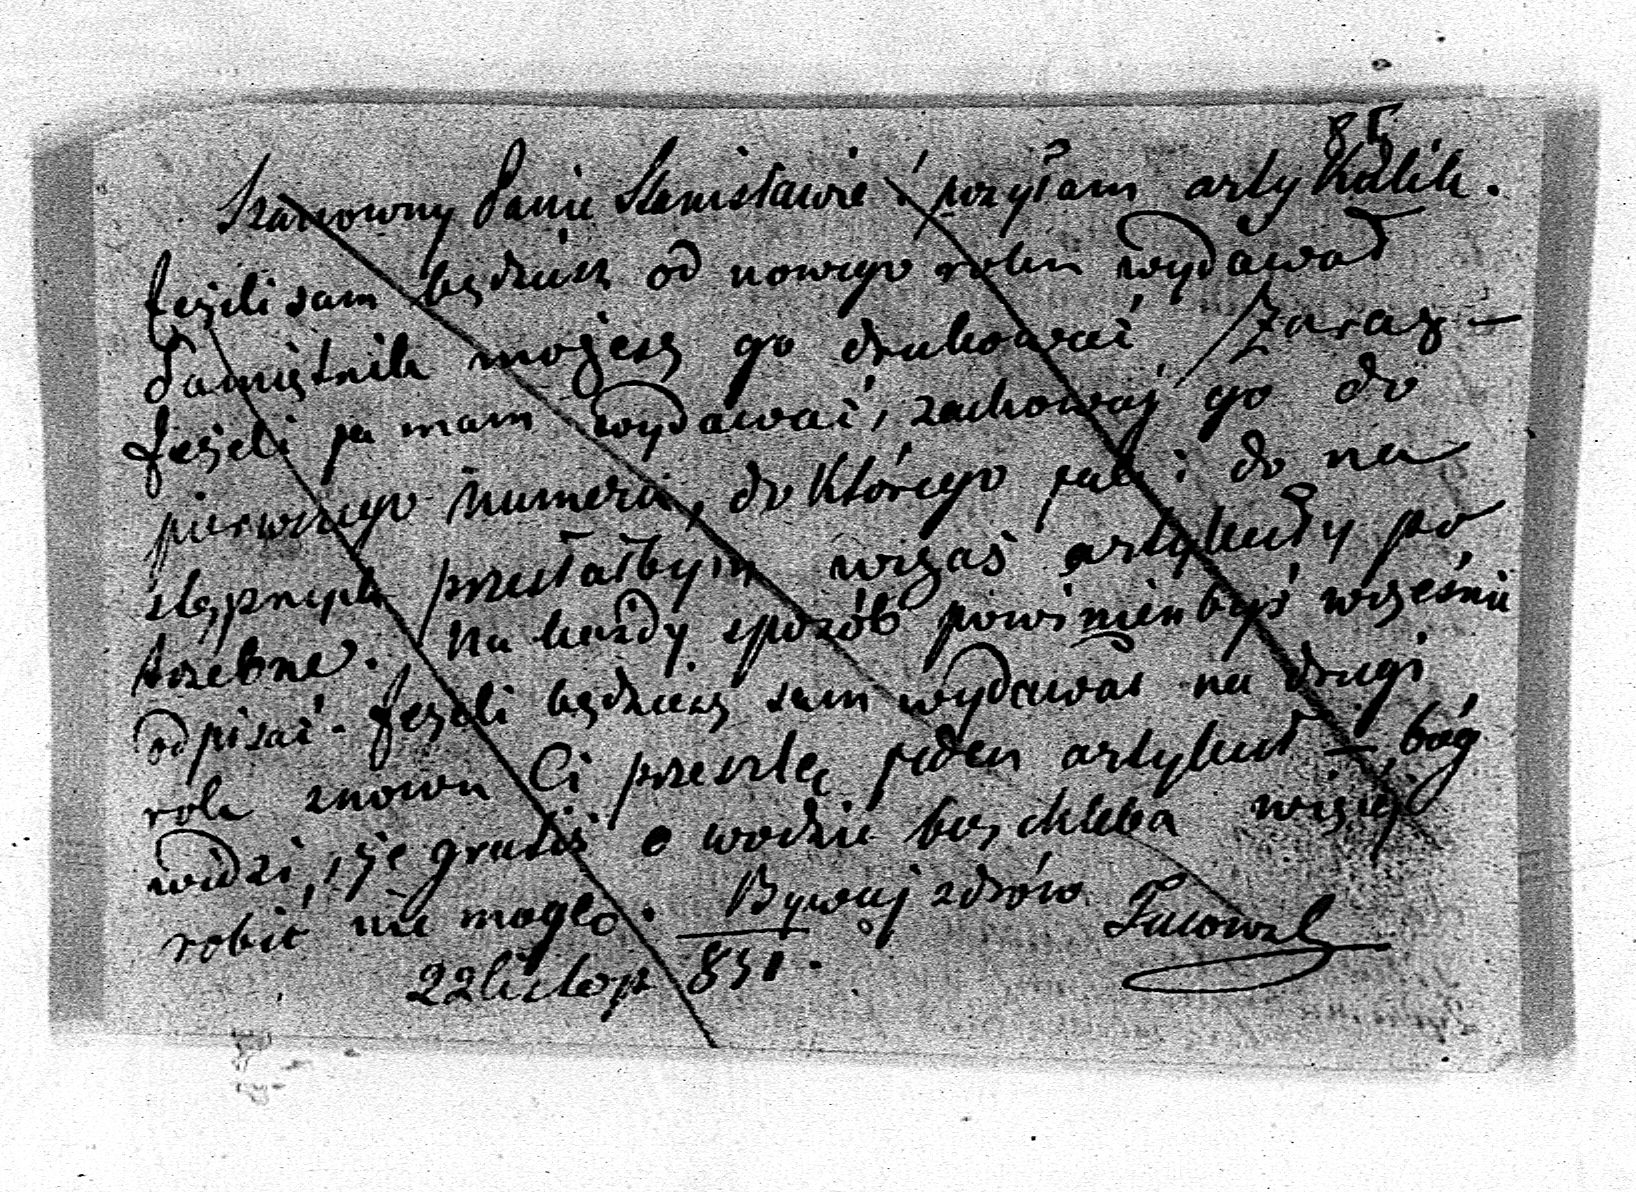 85
Szanowny Panie Stanisławie! pozyłam artykulik.
Jeżeli sam będziesz od nowego roku wydawał
Pamiętnik możesz go drukować zaraz –
Jeżeli ja mam wydawać, zachowaj go do
pierwszego numeru, do którego jak i do na
stępnych przesłałbym wczas artykuły po
trzebne. Na każdy sposób powinienbyś wcześnie
odpisać. Jeżeli będziesz sam wydawał na drugi
rok znowu Ci prześlę jeden artykuł – bóg
widzi, że gratis o wodzie bez chleba więcej
robić nie mogę. Bywaj zdrów
22 listop 851.